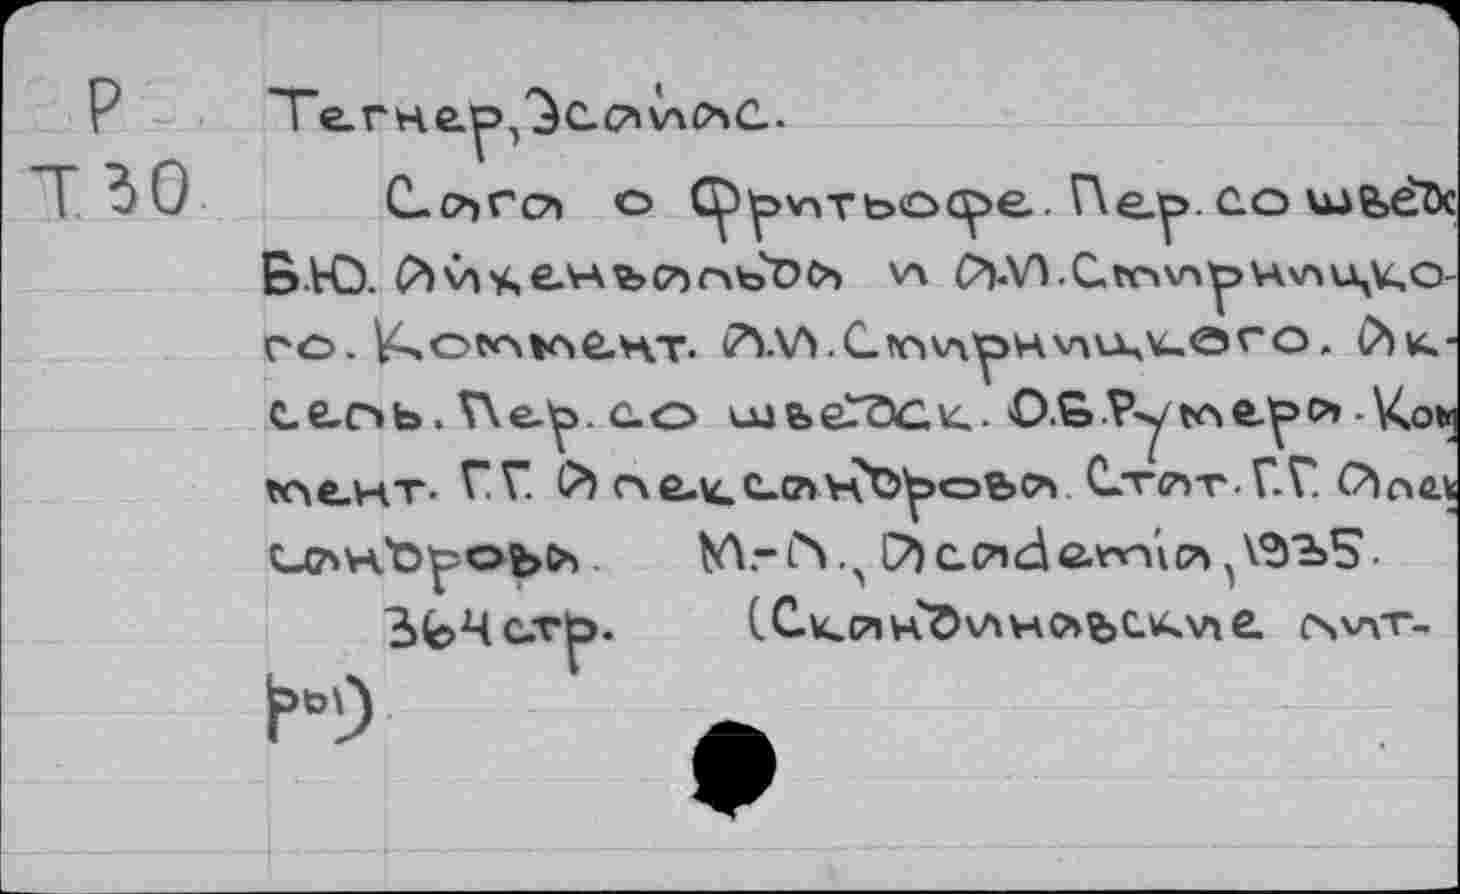 Р Тегнер, Эсайас.
Т 30 Сага о Фритьофе. Пер. со шведс
Б.Ю. Айхенвальда и А.И. Смирницко-
го. Коммент. А.И. Смирницкого. Ак-
сель. Пер. со шведск. О.Б. Румера. Ком
мент. Г.Г. Александрова Стат. Г.Г. Алек
сандрова. М.-Л., Academia, 1935.
364 стр. (Скандинавские лит-
ры)